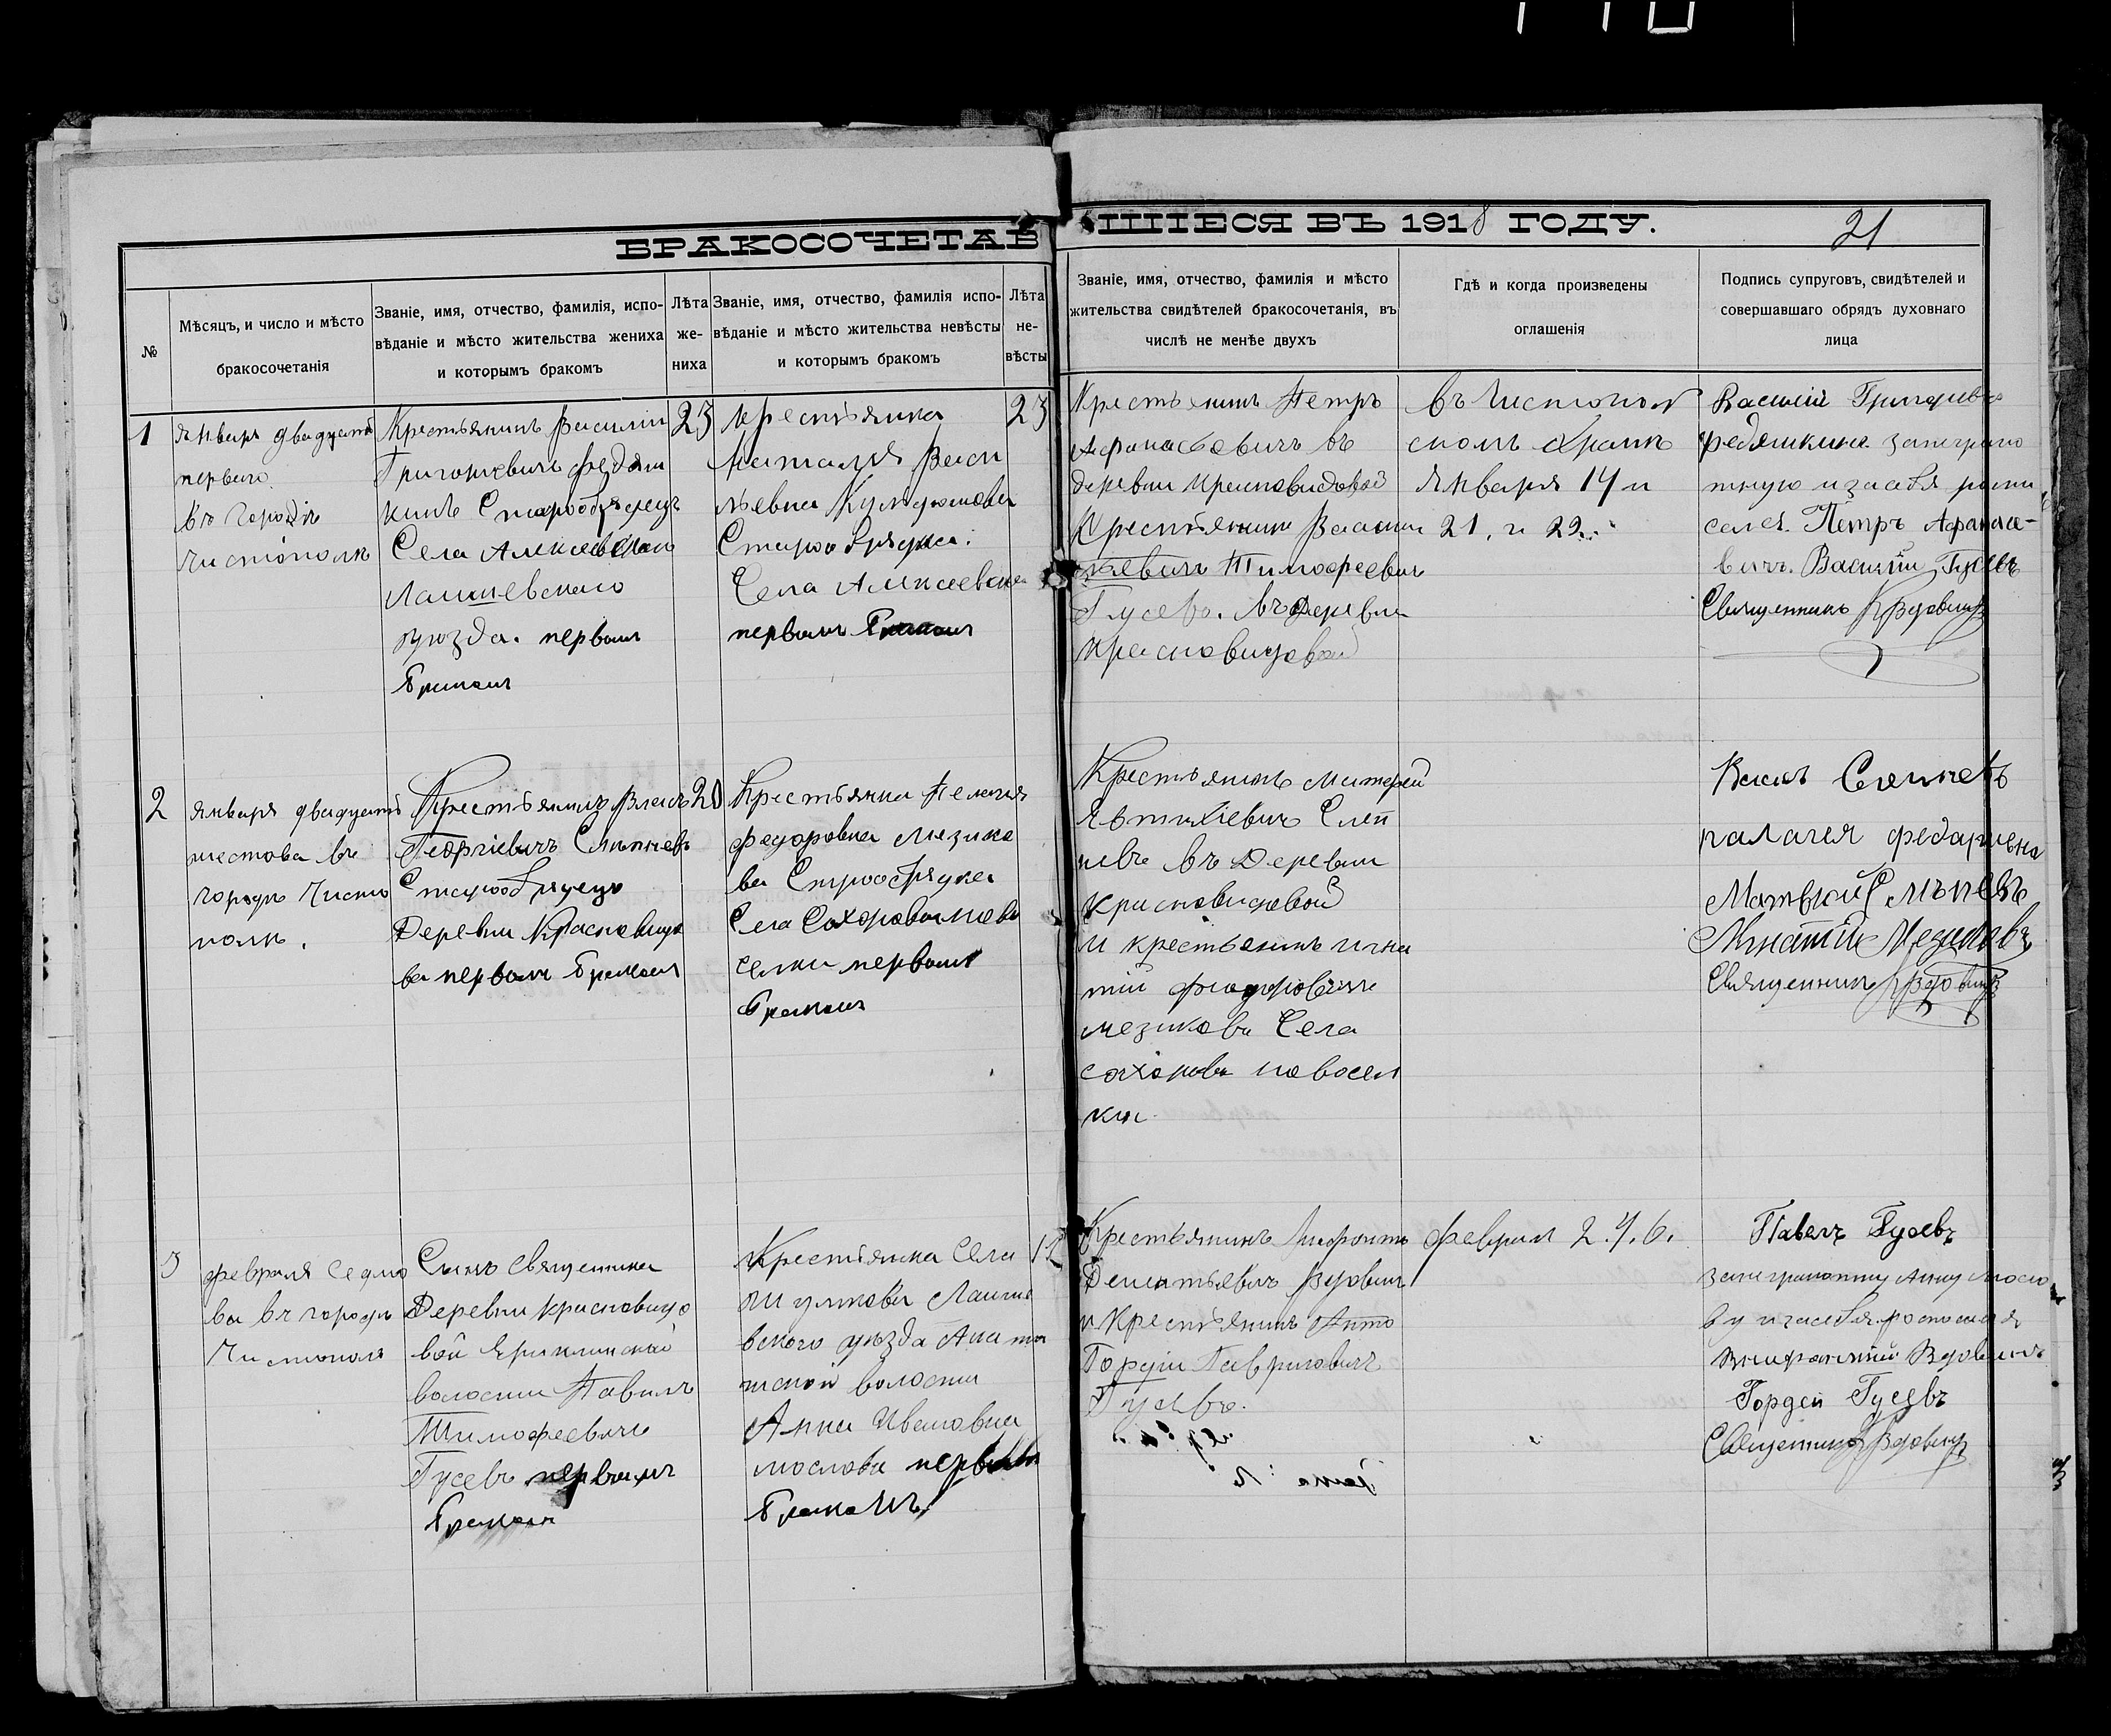 БРАКОСОЧЕТАВ
ШІЕСЯ ВЪ 1918 ГОДУ.
21
№
Мѣсяцъ, и число и мѣсто
бракосочетанія
Званіе, имя, отчество, фамилія, испо-
вѣданіе и мѣсто жительства жениха
и которымъ бракомъ
Лѣта
же-
ниха
Званіе, имя, отчество, фамилія испо-
вѣданіе и мѣсто жительства невѣсты
и которымъ бракомъ
Лѣта
не-
вѣсты
Званіе, имя, отчество, фамилія и мѣсто
жительства свидѣтелей бракосочетанія, въ
числѣ не менѣе двухъ
Гдѣ и когда произведены
оглашенія
Подпись супруговъ, свидѣтелей и
совершавшаго обрядъ духовнаго
лица
1
января двадцать
перваго
въ городѣ
Чистополѣ
Крестьянинъ Василий
Григорьевичъ Федяш
кинъ Старообрядецъ
Села Алексѣевскаго
Лаишевскаго
уѣзда. первымъ
бракомъ
23
крестьянка
Наталья Васи
льевна
Старообрядка.
Села Алексеевска
первымъ бракомъ
23
Крестьянинъ Петръ
Афанасьевичъ въ
деревни Красновидовой
Крестьянинъ Васили
евичъ Тимофеевичъ
Гусевъ. въ деревни
Красновидовой
въ Чистопол
скомъ храмѣ
Января 14 и
21. и 22.
Василий Григорьев
Федяшкина
тную и за себя роспи
Петръ Афанась-
вичъ. Василий Гусевъ
Священникъ Вдовинъ
2
января двадцать
шестова въ
городѣ Чисто
полѣ.
Крестьянинъ Власъ
Георгіевичъ Слепневъ
Старообрядецъ
Деревни Красновидо
ва первымъ бракомъ
20
Крестьянка Пелагея
Федоровна Мезико
ва Старообрядка
Села Сахоровы Ново
селки первымъ
бракомъ
Крестьянинъ Матфей
Евтихіевичъ Слеп
невъ въ Деревни
Красновидовой
и крестьянинъ Игна
тій Феодоровичъ
мезиковъ Села
сахоровы новосел
ки.
Власъ Слепневъ
палагея федаровна
Игнатій Мезиковъ
Священникъ Вдовинъ
3
февраля седмо
ва въ городѣ
Чистополя
Сынъ священика
Деревни красновидо
вой Ерыклинской
волости Павелъ
Тимофеевичъ
Гусевъ первымъ
бракомъ
Крестьянка Села
Шумкова Лаише
вского уѣзда
волости
Анна Ивановна
мослова первымъ
бракомъ
Крестьянинъ
Дементьевичъ Вдовинъ
и Крестьянинъ
Гордій Гавриловичъ
Гусевъ.
февраля 2. 4. 6.
Павелъ Гусевъ
за неграмотну Анну
ву и за себя
Вдовинъ
Гордей Гусевъ
Священникъ Вдовинъ